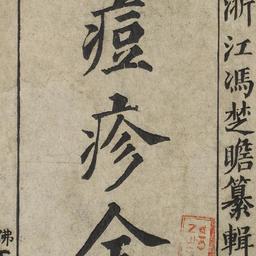 浙江馮楚瞻纂輯
痘疹全
佛